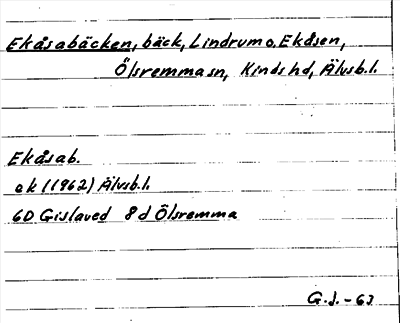 Ekåsabäcken, bäck, Lindrum o. Ekåsen,
Ölsremma sn, Kinds hd, Älvsb. l.
Ekåsab.
ek (1962) Älvsb. l.
6D Gislaved 8 d Ölsremma
G. J. - 63